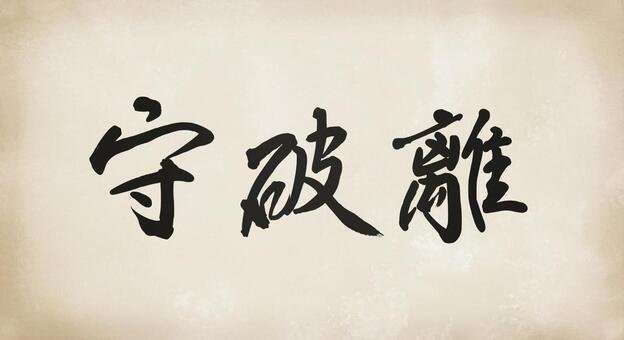 守破離